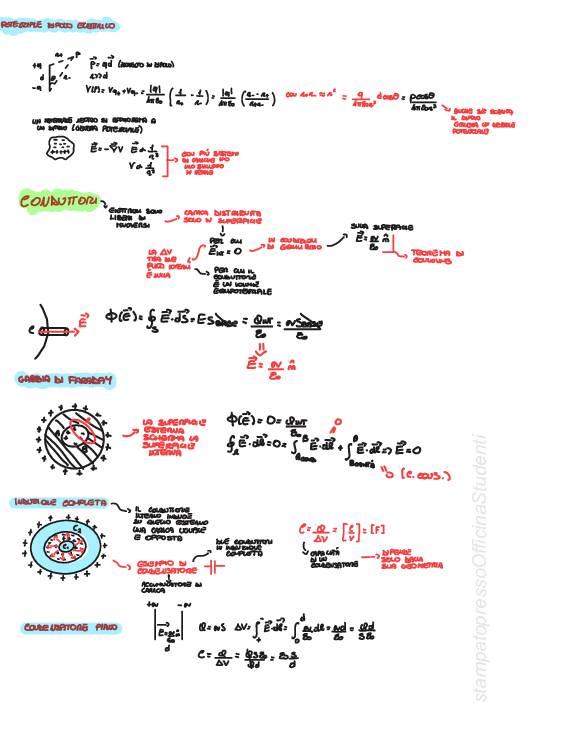 POTENZIALE DIPOLO ELETTRICO
+q
d
-q
θ
P
p⃗ = qd⃗ (MOMENTO DI DIPOLO)
r>>d
V(P) = V+q + V-q = |q|/4πε₀ (1/r₊ - 1/r₋) = |q|/4πε₀ (r₋ - r₊/r₊r₋) CON r₊r₋ ≈ r² = q/4πε₀r² d cosθ = p cosθ/4πε₀r²
UN MATERIALE NEUTRO SI APPROSSIMA A
UN DIPOLO (GENERA POTENZIALE)
E⃗ = -∇⃗V E α 1/r³
V α 1/r²
CON PIÙ SISTEMI
DI CARICHE HO
UNO SVILUPPO
IN SERIE
CONDUTTORI
ELETTRONI SONO
LIBERI DI
MUOVERSI
CARICA DISTRIBUITA
SOLO IN SUPERFICIE
PER CUI
E⃗ INT = 0
IN CONDIZIONI
DI EQUILIBRIO
SULLA SUPERFICIE
E⃗ = σ/ε₀ n̂
TEOREMA DI
COULOMB
LA ΔV
TRA DUE
PUNTI INTERNI
È NULLA
PER CUI IL
CONDUTTORE
È UN VOLUME
EQUIPOTENZIALE
E⃗
Φ(E⃗) = ∮s E⃗·dS⃗ = E S BASE = Q INT/ε₀ = σ S BASE/ε₀
E⃗ = σ/ε₀ n̂
GABBIA DI FARADAY
A
B
LA SUPERFICIE
ESTERNA
SCHERMA LA
SUPERFICIE
INTERNA
Φ(E⃗) = 0 = Q INT/ε₀
∮ E⃗·dl⃗ = 0 = ∫ E⃗·dl⃗ + ∫ E⃗·dl⃗ => E⃗ = 0
0 (C. CONS.)
INDUZIONE COMPLETA
C₂
C₁
IL CONDUTTORE
INTERNO INDUCE
SU QUELLO ESTERNO
UNA CARICA UGUALE
E OPPOSTA
ESEMPIO DI
CONDENSATORE
DUE CONDUTTORI
IN INDUZIONE
COMPLETA
ACCUMULATORE DI
CARICA
C = Q/ΔV = [C/V] = [F]
CAPACITÀ
DI UN
CONDENSATORE
DIPENDE
SOLO DALLA
SUA GEOMETRIA
CONDENSATORE PIANO
+σ -σ
E = σ/ε₀ n̂
d
Q = σS ΔV = ∫ E⃗·dl⃗ = ∫ σ/ε₀ dl = σd/ε₀ = Qd/Sε₀
C = Q/ΔV = QSε₀/Qd = ε₀S/d
stampatopressoOfficinaStudenti